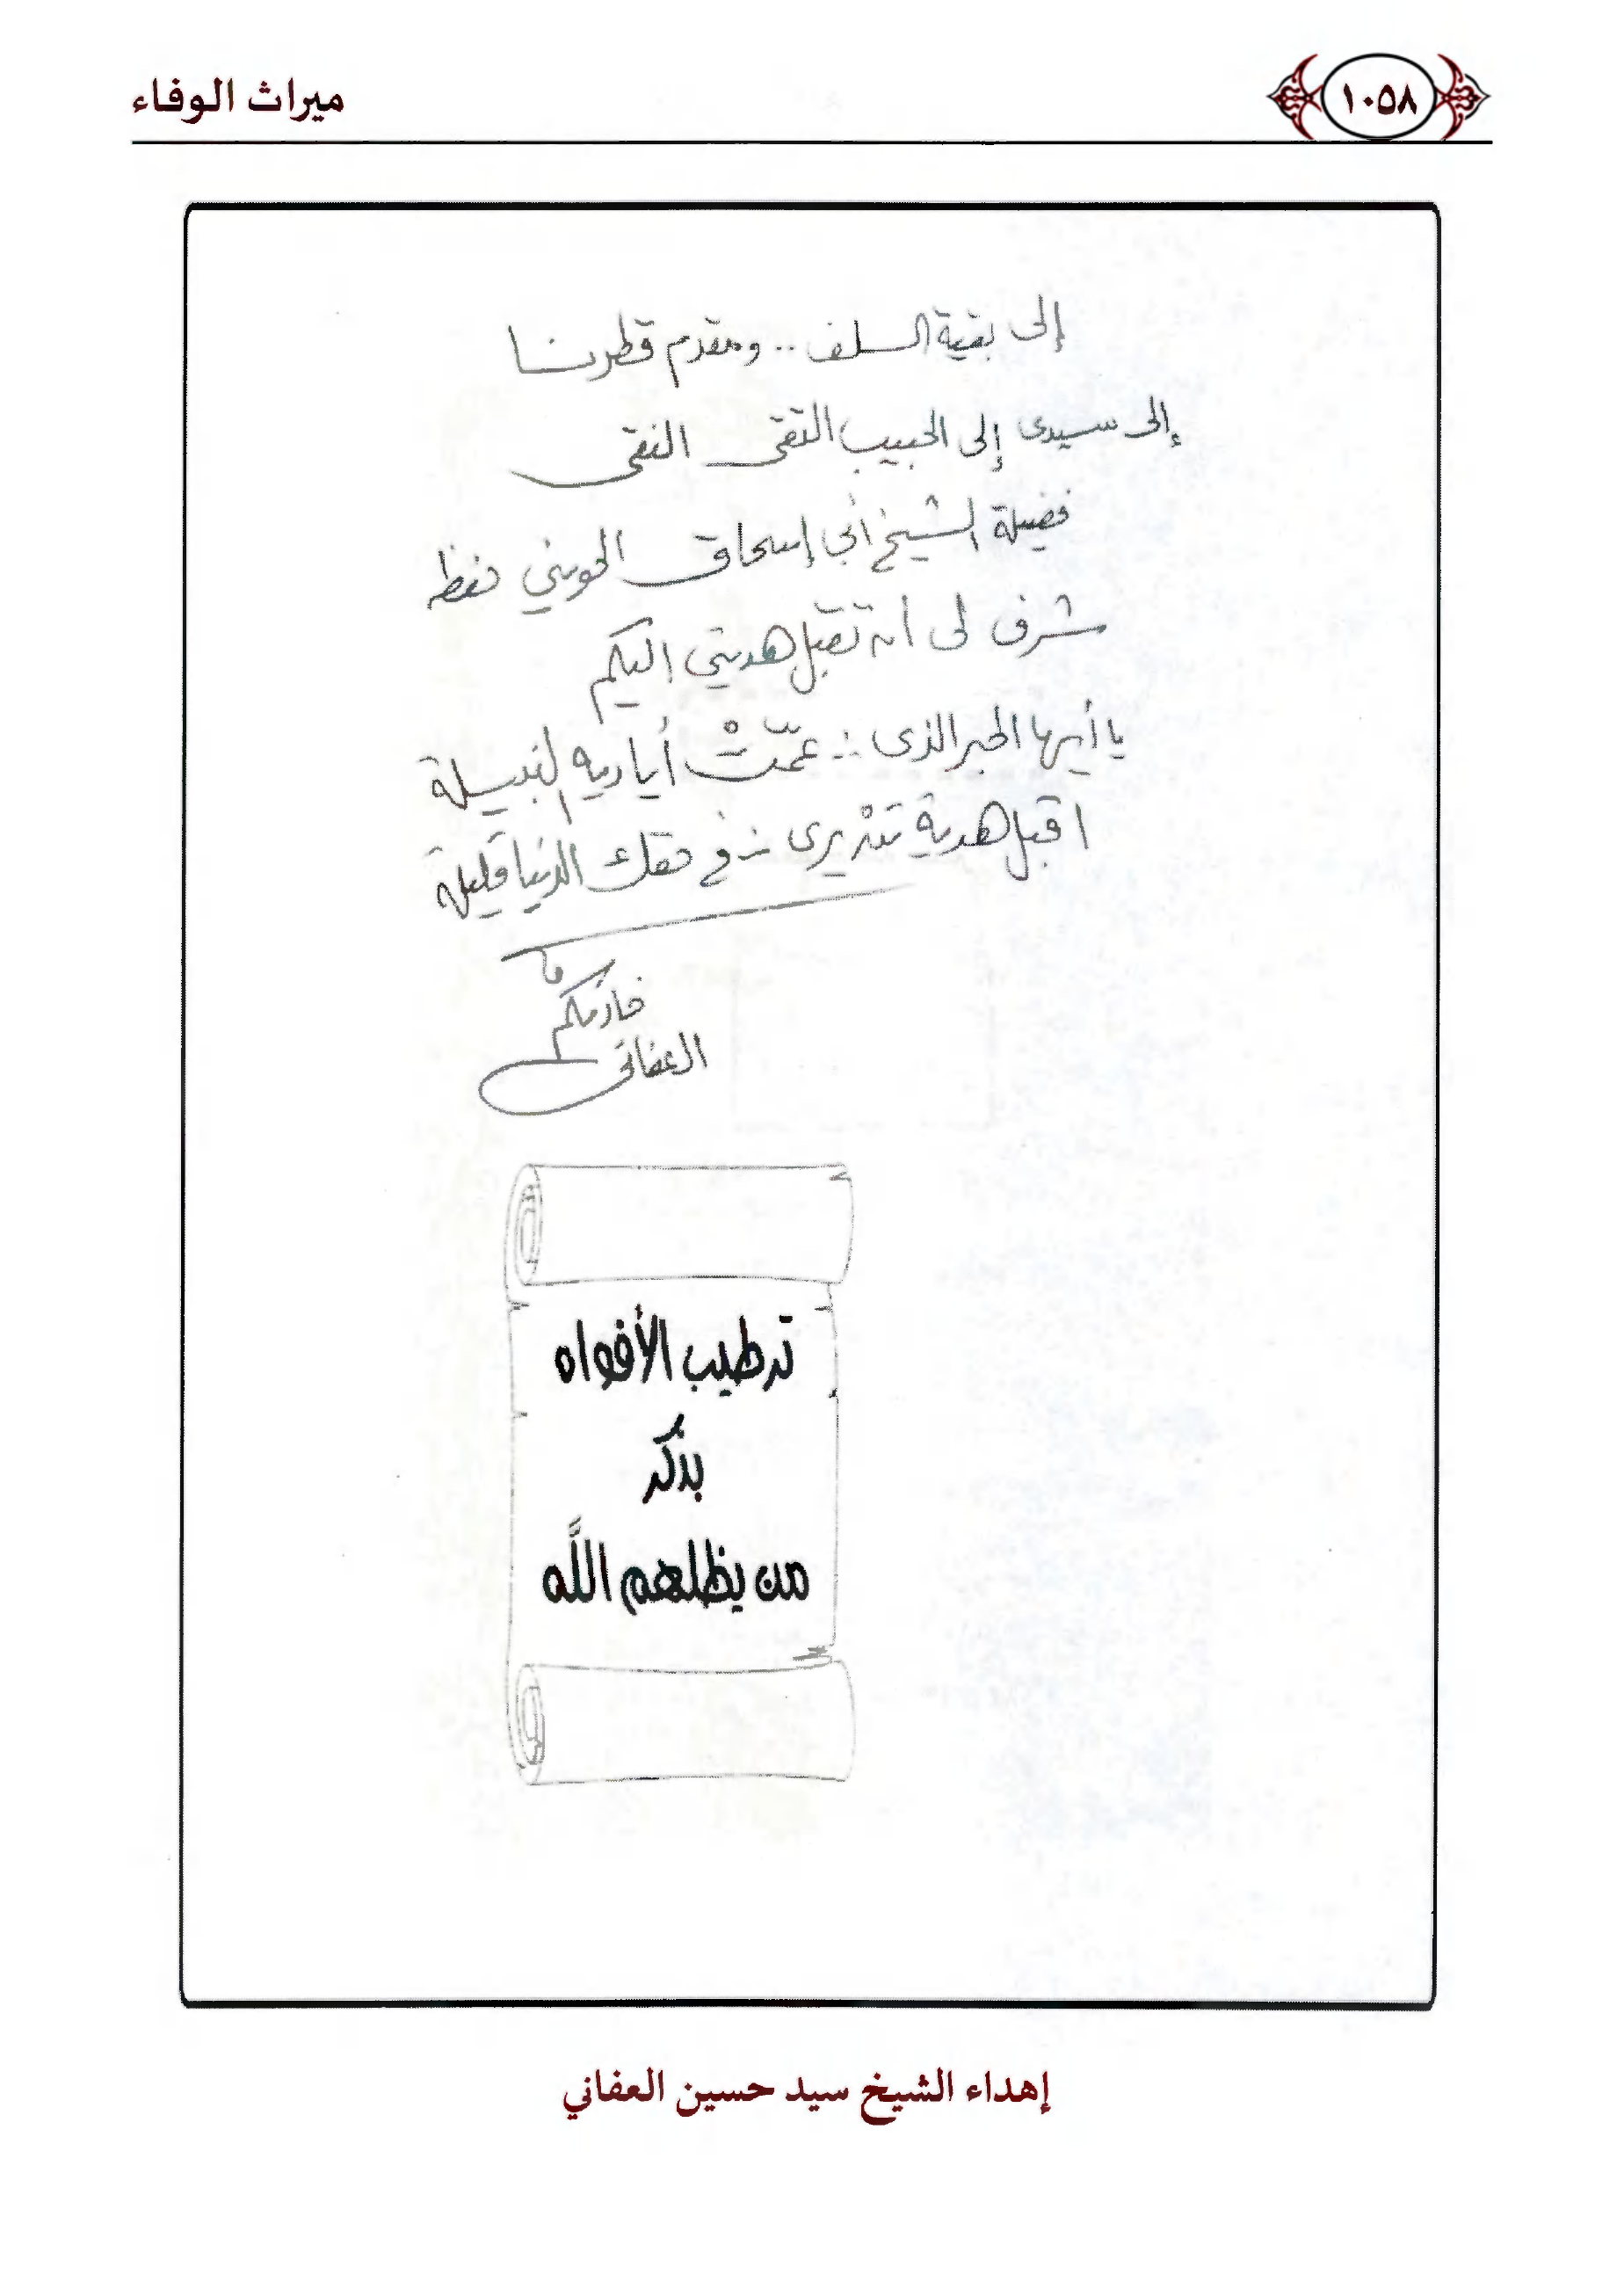 ١٠٥٨
ميراث الوفاء
إلى بقية السلف .. ومقدم قطرنا
إلى سيدى إلى الحبيب التقى النقى
فضيلة الشيخ أبى إسحاق الحوينى
شرف لى أن تقبل هديتى إليكم
يا أيها الحبر الذى ∴ عمّتْ أياديه
اقبل هدية ∴ فى حقك الدنيا قليلة
خادمكم
العفانى
ترطيب الأفواه
بذكر
من يظلهم اللَّه
إهداء الشيخ سيد حسين العفاني